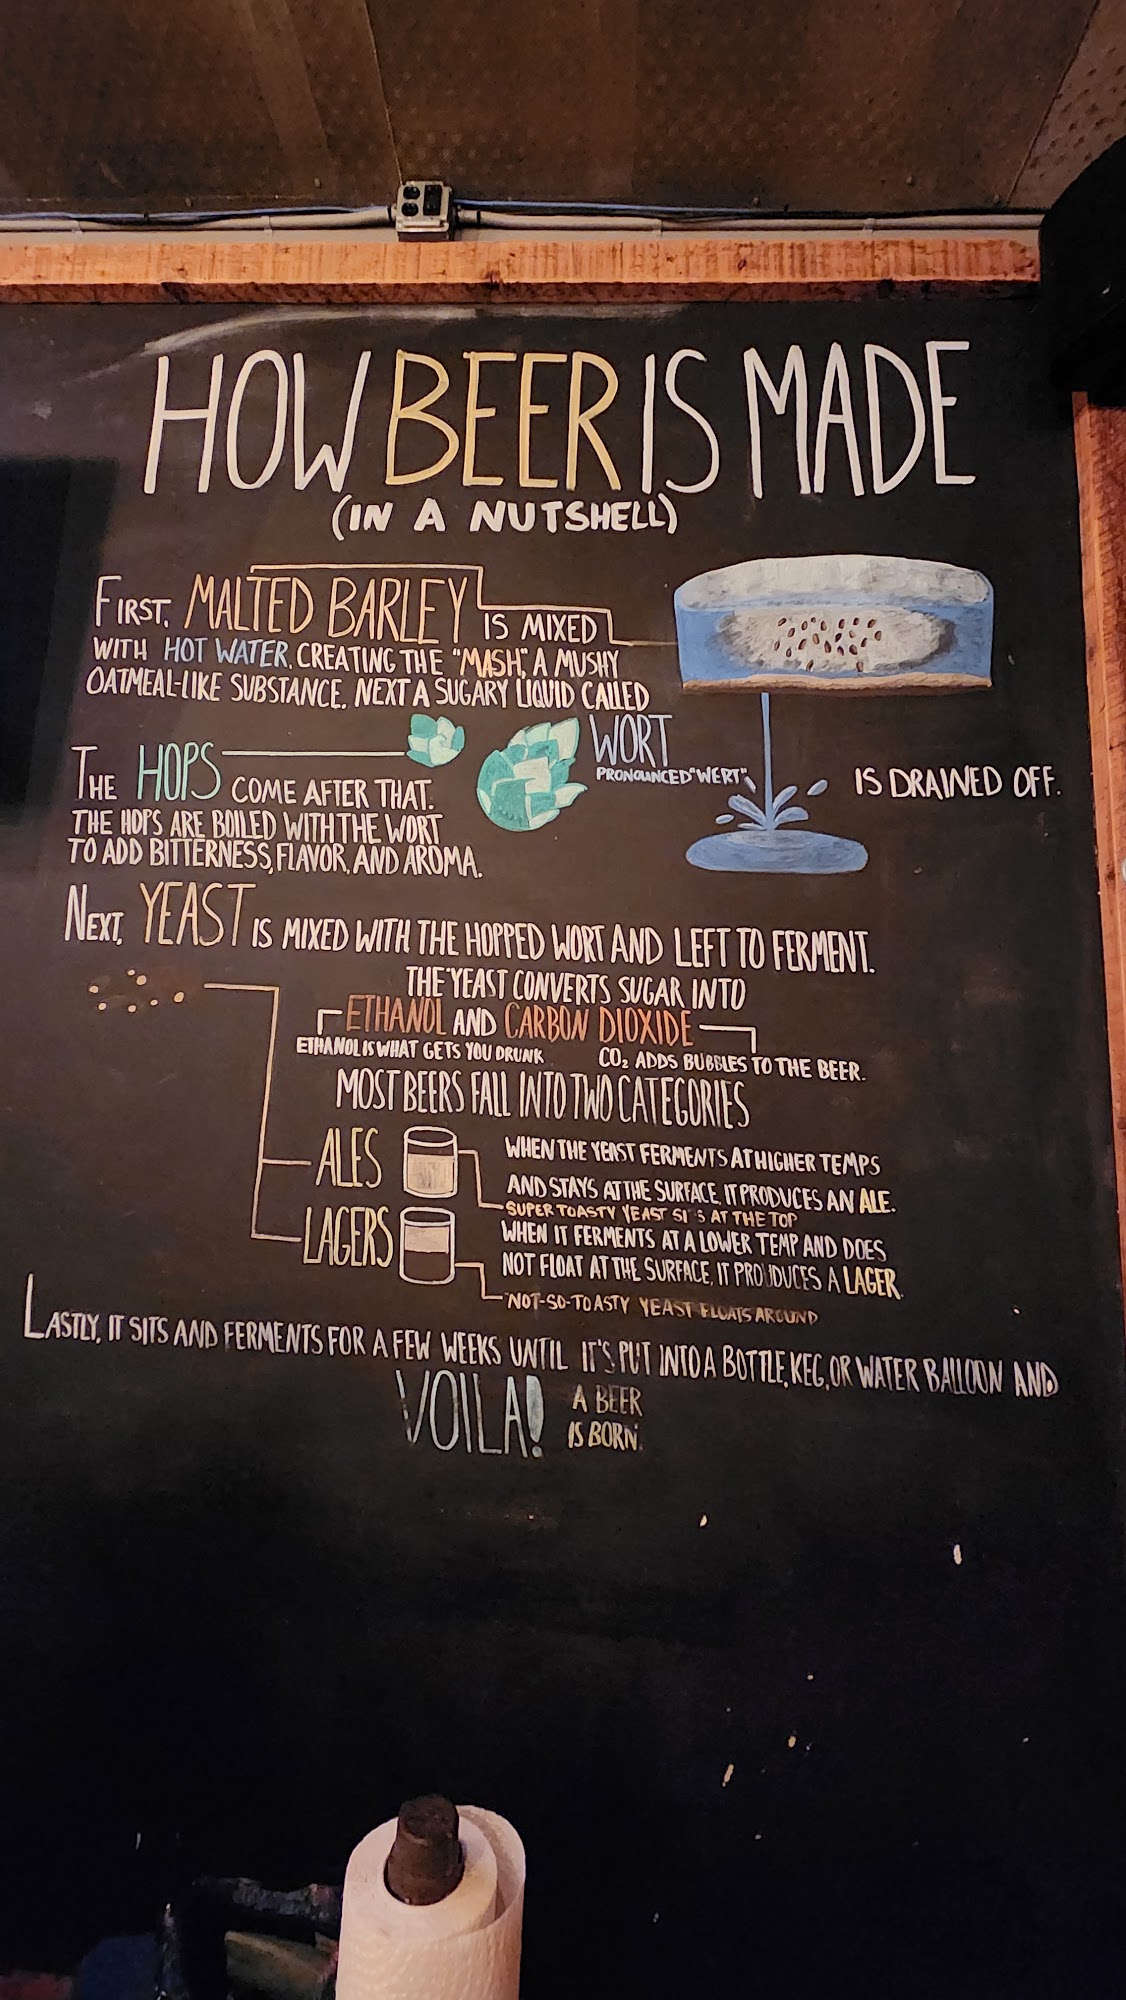 HOW BEER IS MADE
(IN A NUTSHELL)
FIRST, MALTED BARLEY IS MIXED
WITH HOT WATER, CREATING THE "MASH," A MUSHY
OATMEAL-LIKE SUBSTANCE. NEXT A SUGARY LIQUID CALLED
WORT
PRONOUNCED "WERT"
IS DRAINED OFF.
THE HOPS COME AFTER THAT.
THE HOPS ARE BOILED WITH THE WORT
TO ADD BITTERNESS, FLAVOR, AND AROMA.
NEXT, YEAST IS MIXED WITH THE HOPPED WORT AND LEFT TO FERMENT.
THE YEAST CONVERTS SUGAR INTO
ETHANOL AND CARBON DIOXIDE
ETHANOL IS WHAT GETS YOU DRUNK
CO₂ ADDS BUBBLES TO THE BEER.
MOST BEERS FALL INTO TWO CATEGORIES
ALES
WHEN THE YEAST FERMENTS AT HIGHER TEMPS
AND STAYS AT THE SURFACE, IT PRODUCES AN ALE.
SUPER TOASTY YEAST SI S AT THE TOP
LAGERS
WHEN IT FERMENTS AT A LOWER TEMP AND DOES
NOT FLOAT AT THE SURFACE, IT PRODUCES A LAGER.
NOT-SO-TOASTY YEAST FLOATS AROUND
LASTLY, IT SITS AND FERMENTS FOR A FEW WEEKS UNTIL IT'S PUT INTO A BOTTLE, KEG, OR WATER BALLOON AND
VOILA! A BEER
IS BORN.